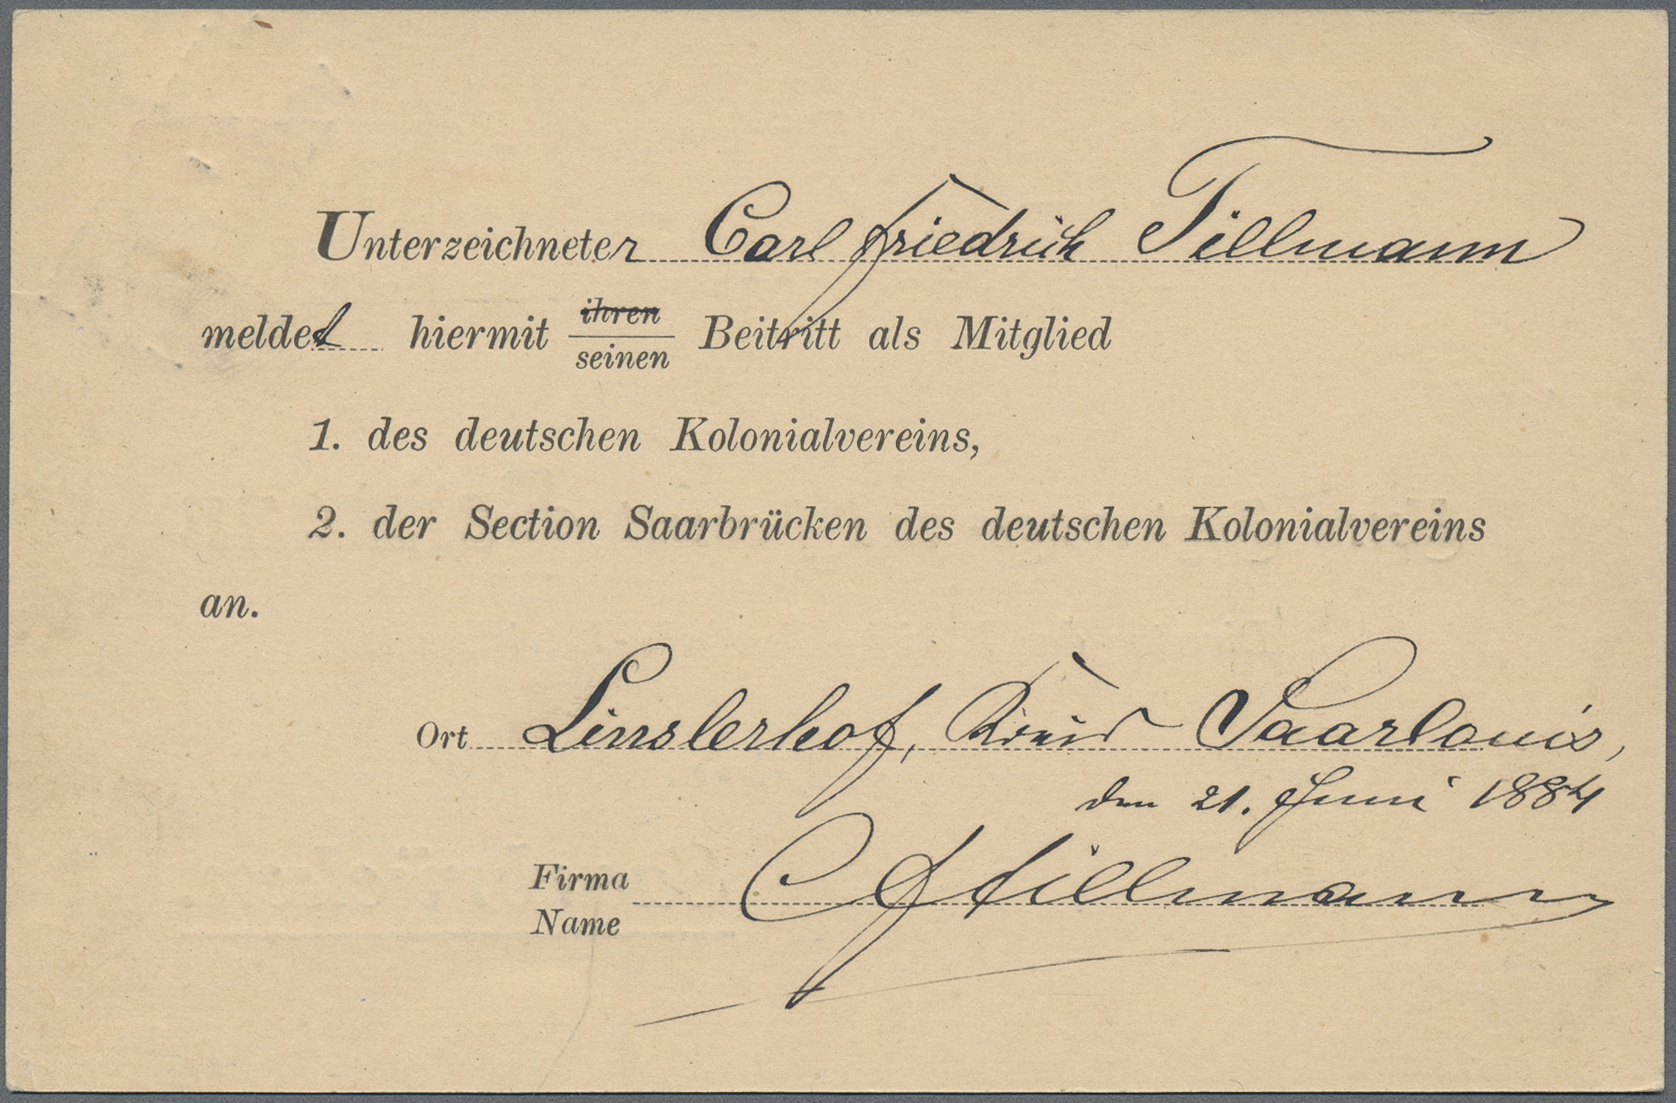 Unterzeichneter Carl Friedrich Tillmann
meldet hiermit ihren Beitritt als Mitglied
seinen
1. des deutschen Kolonialvereins,
2. der Section Saarbrücken des deutschen Kolonialvereins
an.
Ort Linslerhof, Kreis Saarlouis,
den 21. Juni 1884
Firma
Name
C F Tillmann